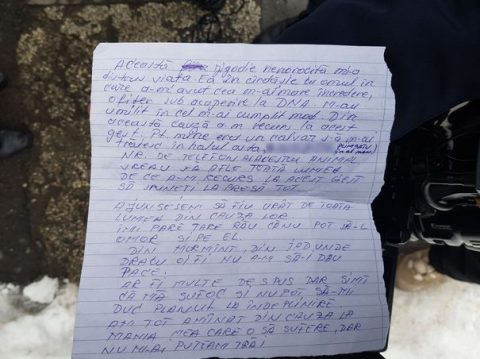 ACEASTĂ JIGODIE NENOROCITĂ MI-A
DISTRUS VIAȚA EA ÎN CÎRDĂȘIE CU OMUL ÎN
CARE A-M AVUT CEA M-AI MARE ÎNCREDERE,
OFIȚER SUB ACOPERIRE LA DNA. M-AU
UMILIT ÎN CEL M-AI CUMPLIT MOD. DIN
ACEASTĂ CAUZĂ A-M RECURS LA ACEST
GEST. PT. MINE ERA UN CALVAR A M-AI
TRĂI ÎN HALUL ĂSTA.
NR. DE TELEFON AL ACESTUI ANIMAL
VREAU SĂ AFLE TOATĂ LUMEA
DE CE A-M RECURS LA ACEST GEST
SĂ SPUNEȚI LA PRESĂ TOT.
AJUNSESEM SĂ FIU URÂT DE TOATĂ
LUMEA DIN CAUZA LOR.
ÎMI PARE TARE RĂU CĂ NU POT SĂ-L
OMOR ȘI PE EL.
DIN MORMÎNT, DIN IAD UNDE
DRACU OI FI NU A-M SĂ-I DAU
PACE.
AR FI MULTE DE SPUS DAR SIMT
CĂ MĂ SUFOC ȘI NU POT SĂ-MI
DUC PLANUL LA ÎNDEPLINIRE
AM TOT AMÎNAT DIN CAUZA LA
MAMA MEA CARE O SĂ SUFERE, DAR
NU M-AI PUTEAM TRĂI